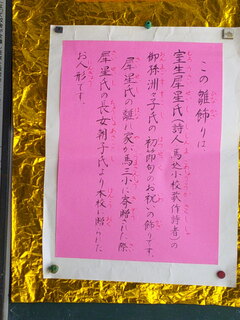 この雛飾りは
室生犀星氏(詩人、馬込小校歌作詩者)の
御孫洲々子氏の初節句のお祝いの飾りです。
犀星氏の離れ家が馬三小に寄贈された際
犀星氏の長女朝子氏より本校に贈られた
お人形です。